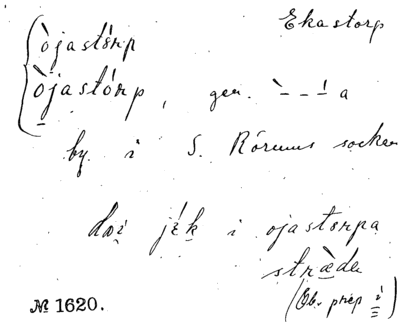 Ekastorp
òjastórp
òjastórp, gen. ˋ – – ́ a
by i S. Rörums socken
doi jék i ojastorpa
sträde
(Obs. prep i)
№ 1620.